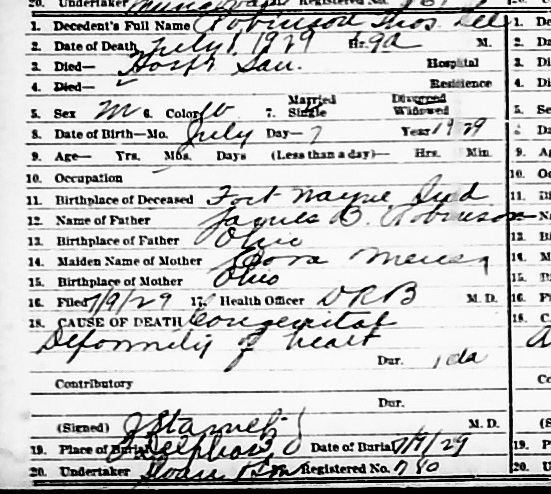 20. Undertaker Registered No.
1. Decedent's Full Name Robinson Thos Lee
2. Date of Death July 8, 1929 Hr. 9a M.
3. Died— Hosp. San. Hospital
4. Died— Residence
5. Sex M 6. Color W 7. Married Single Divorced Widowed
8. Date of Birth—Mo. July Day— 7 Year 1929
9. Age— Yrs. Mos. Days (Less than a day)— Hrs. Min.
10. Occupation
11. Birthplace of Deceased Fort Wayne Ind
12. Name of Father James B. Robinson
13. Birthplace of Father Ohio
14. Maiden Name of Mother Dora
15. Birthplace of Mother Ohio
16. Filed 7/9/29 17. Health Officer DRB M. D.
18. CAUSE OF DEATH Congenital
Deformity of heart
Dur. 1 da
Contributory
Dur.
(Signed) M. D.
19. Place of Burial Delphos O Date of Burial 29
20. Undertaker Registered No. 780